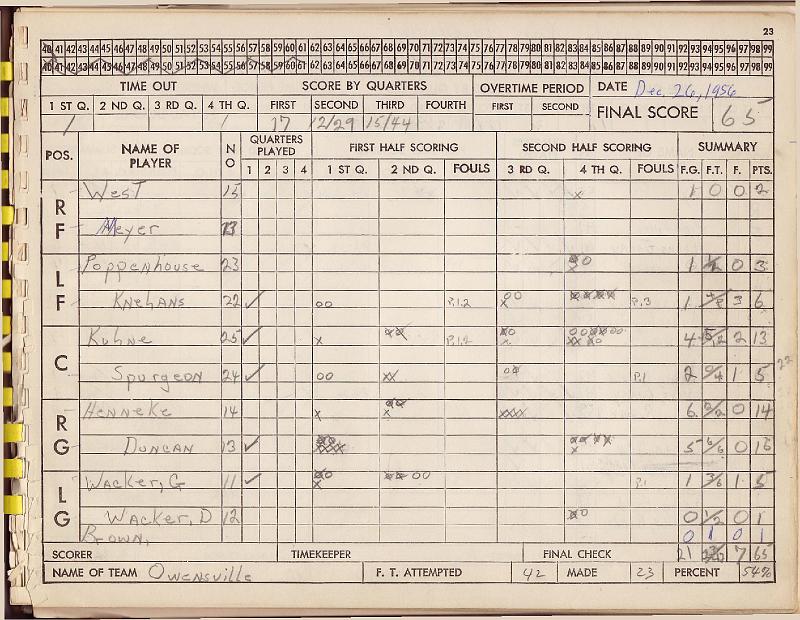 23
40 41 42 43 44 45 46 47 48 49 50 51 52 53 54 55 56 57 58 59 60 61 62 63 64 65 66 67 68 69 70 71 72 73 74 75 76 77 78 79 80 81 82 83 84 85 86 87 88 89 90 91 92 93 94 95 96 97 98 99
40 41 42 43 44 45 46 47 48 49 50 51 52 53 54 55 56 57 58 59 60 61 62 63 64 65 66 67 68 69 70 71 72 73 74 75 76 77 78 79 80 81 82 83 84 85 86 87 88 89 90 91 92 93 94 95 96 97 98 99
TIME OUT SCORE BY QUARTERS OVERTIME PERIOD DATE Dec. 26, 1956
1 ST Q. 2 ND Q. 3 RD Q. 4 TH Q. FIRST SECOND THIRD FOURTH FIRST SECOND FINAL SCORE 65
/ / 17 12/29 15/44
POS. NAME OF PLAYER NO QUARTERS PLAYED FIRST HALF SCORING SECOND HALF SCORING SUMMARY
1 2 3 4 1 ST Q. 2 ND Q. FOULS 3 RD Q. 4 TH Q. FOULS F.G. F.T. F. PTS.
RF West 15 x 1 0 0 2
Meyer 13
LF Poppenhouse 23 1 0 3
Knehans 22 ✓ oo P.1.2 P.3 1 3 6
C Kuhne 25 ✓ x P.1.2 4 2 13
Spurgeon 24 ✓ oo xx P.1 2 1 5 22
RG Henneke 14 x xxx 6 0 14
Duncan 13 ✓ 5 6/6 0 16
LG Wacker, G 11 ✓ P.1 1 3/6 1 5
Wacker, D 12 0 1/2 0 1
Brown, 0 1 0 1
SCORER TIMEKEEPER FINAL CHECK 21 7 65
NAME OF TEAM Owensville F. T. ATTEMPTED 42 MADE 23 PERCENT 54%